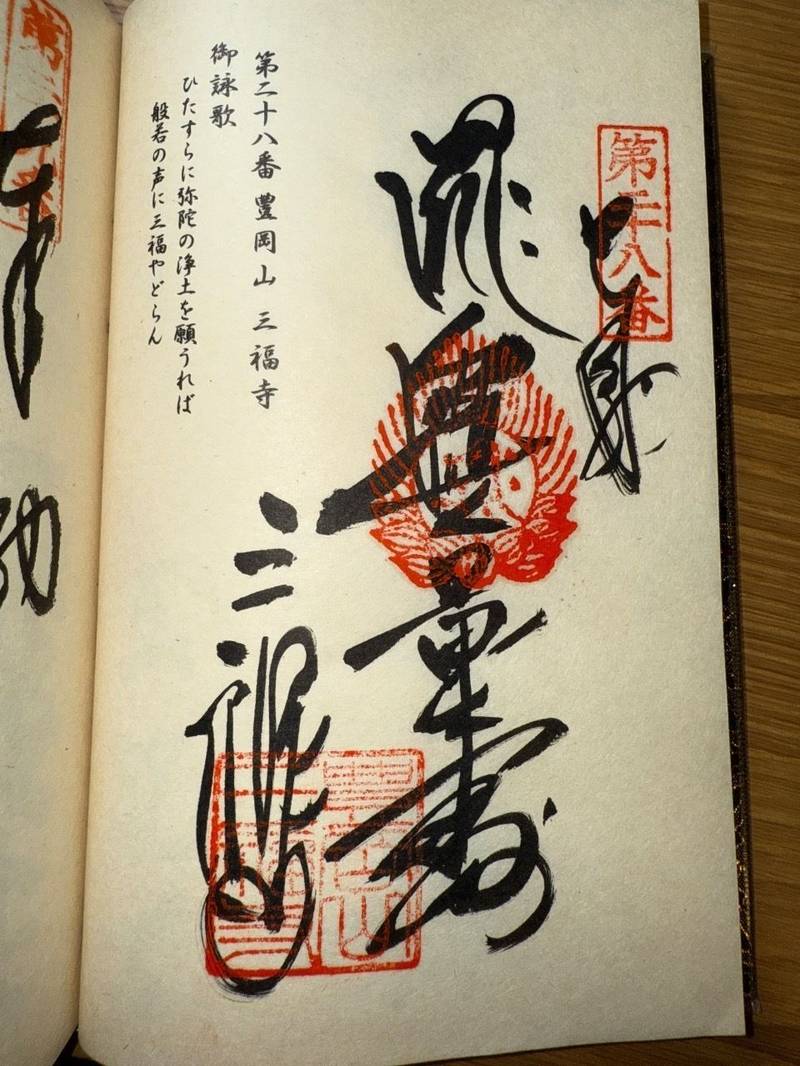 第二十八番
無量寿
三福寺
豊岡山
三福寺
第二十八番 豊岡山 三福寺
御詠歌
ひたすらに弥陀の浄土を願うれば
般若の声に三福やどらん